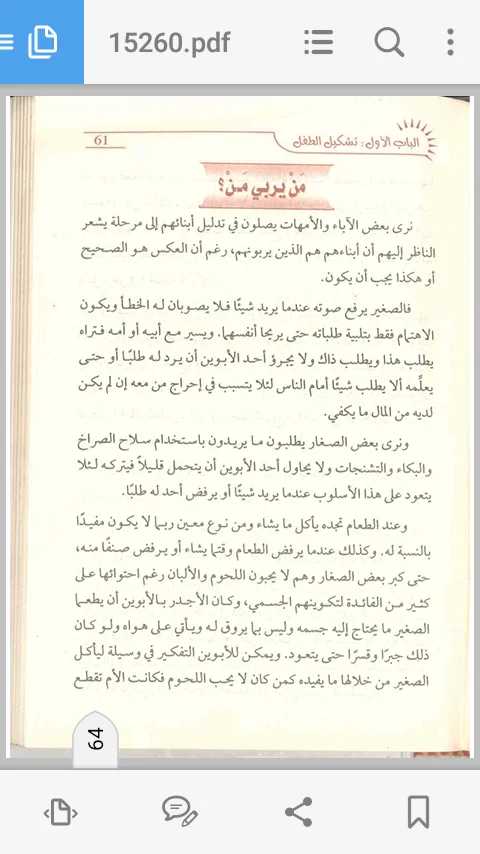 15260.pdf
الباب الأول: تشكيل الطفل
61
مَنْ يربي مَنْ؟
نرى بعض الآباء والأمهات يصلون في تدليل أبنائهم إلى مرحلة يشعر
الناظر إليهم أن أبناءهم هم الذين يربونهم، رغم أن العكس هو الصحيح
أو هكذا يجب أن يكون.
فالصغير يرفع صوته عندما يريد شيئًا فلا يصوبان له الخطأ ويكون
الاهتمام فقط بتلبية طلباته حتى يريحا أنفسهما. ويسير مع أبيه أو أمه فتراه
يطلب هذا ويطلب ذاك ولا يجرؤ أحد الأبوين أن يرد له طلبًا أو حتى
يعلِّمه ألا يطلب شيئًا أمام الناس لئلا يتسبب في إحراج من معه إن لم يكن
لديه من المال ما يكفي.
ونرى بعض الصغار يطلبون ما يريدون باستخدام سلاح الصراخ
والبكاء والتشنجات ولا يحاول أحد الأبوين أن يتحمل قليلاً فيتركه لئلا
يتعود على هذا الأسلوب عندما يريد شيئًا أو يرفض أحد له طلبًا.
وعند الطعام تجده يأكل ما يشاء ومن نوع معين ربما لا يكون مفيدًا
بالنسبة له. وكذلك عندما يرفض الطعام وقتما يشاء أو يرفض صنفًا منه،
حتى كبر بعض الصغار وهم لا يحبون اللحوم والألبان رغم احتوائها على
كثير من الفائدة لتكوينهم الجسمي، وكان الأجدر بالأبوين أن يطعما
الصغير ما يحتاج إليه جسمه وليس بما يروق له ويأتي على هواه ولو كان
ذلك جبرًا وقسرًا حتى يتعود. ويمكن للأبوين التفكير في وسيلة ليأكل
الصغير من خلالها ما يفيده كمن كان لا يحب اللحوم فكانت الأم تقطع
64